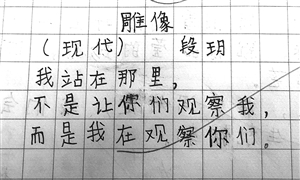 雕像
(现代) 段玥
我站在那里,
不是让你们观察我,
而是我在观察你们。